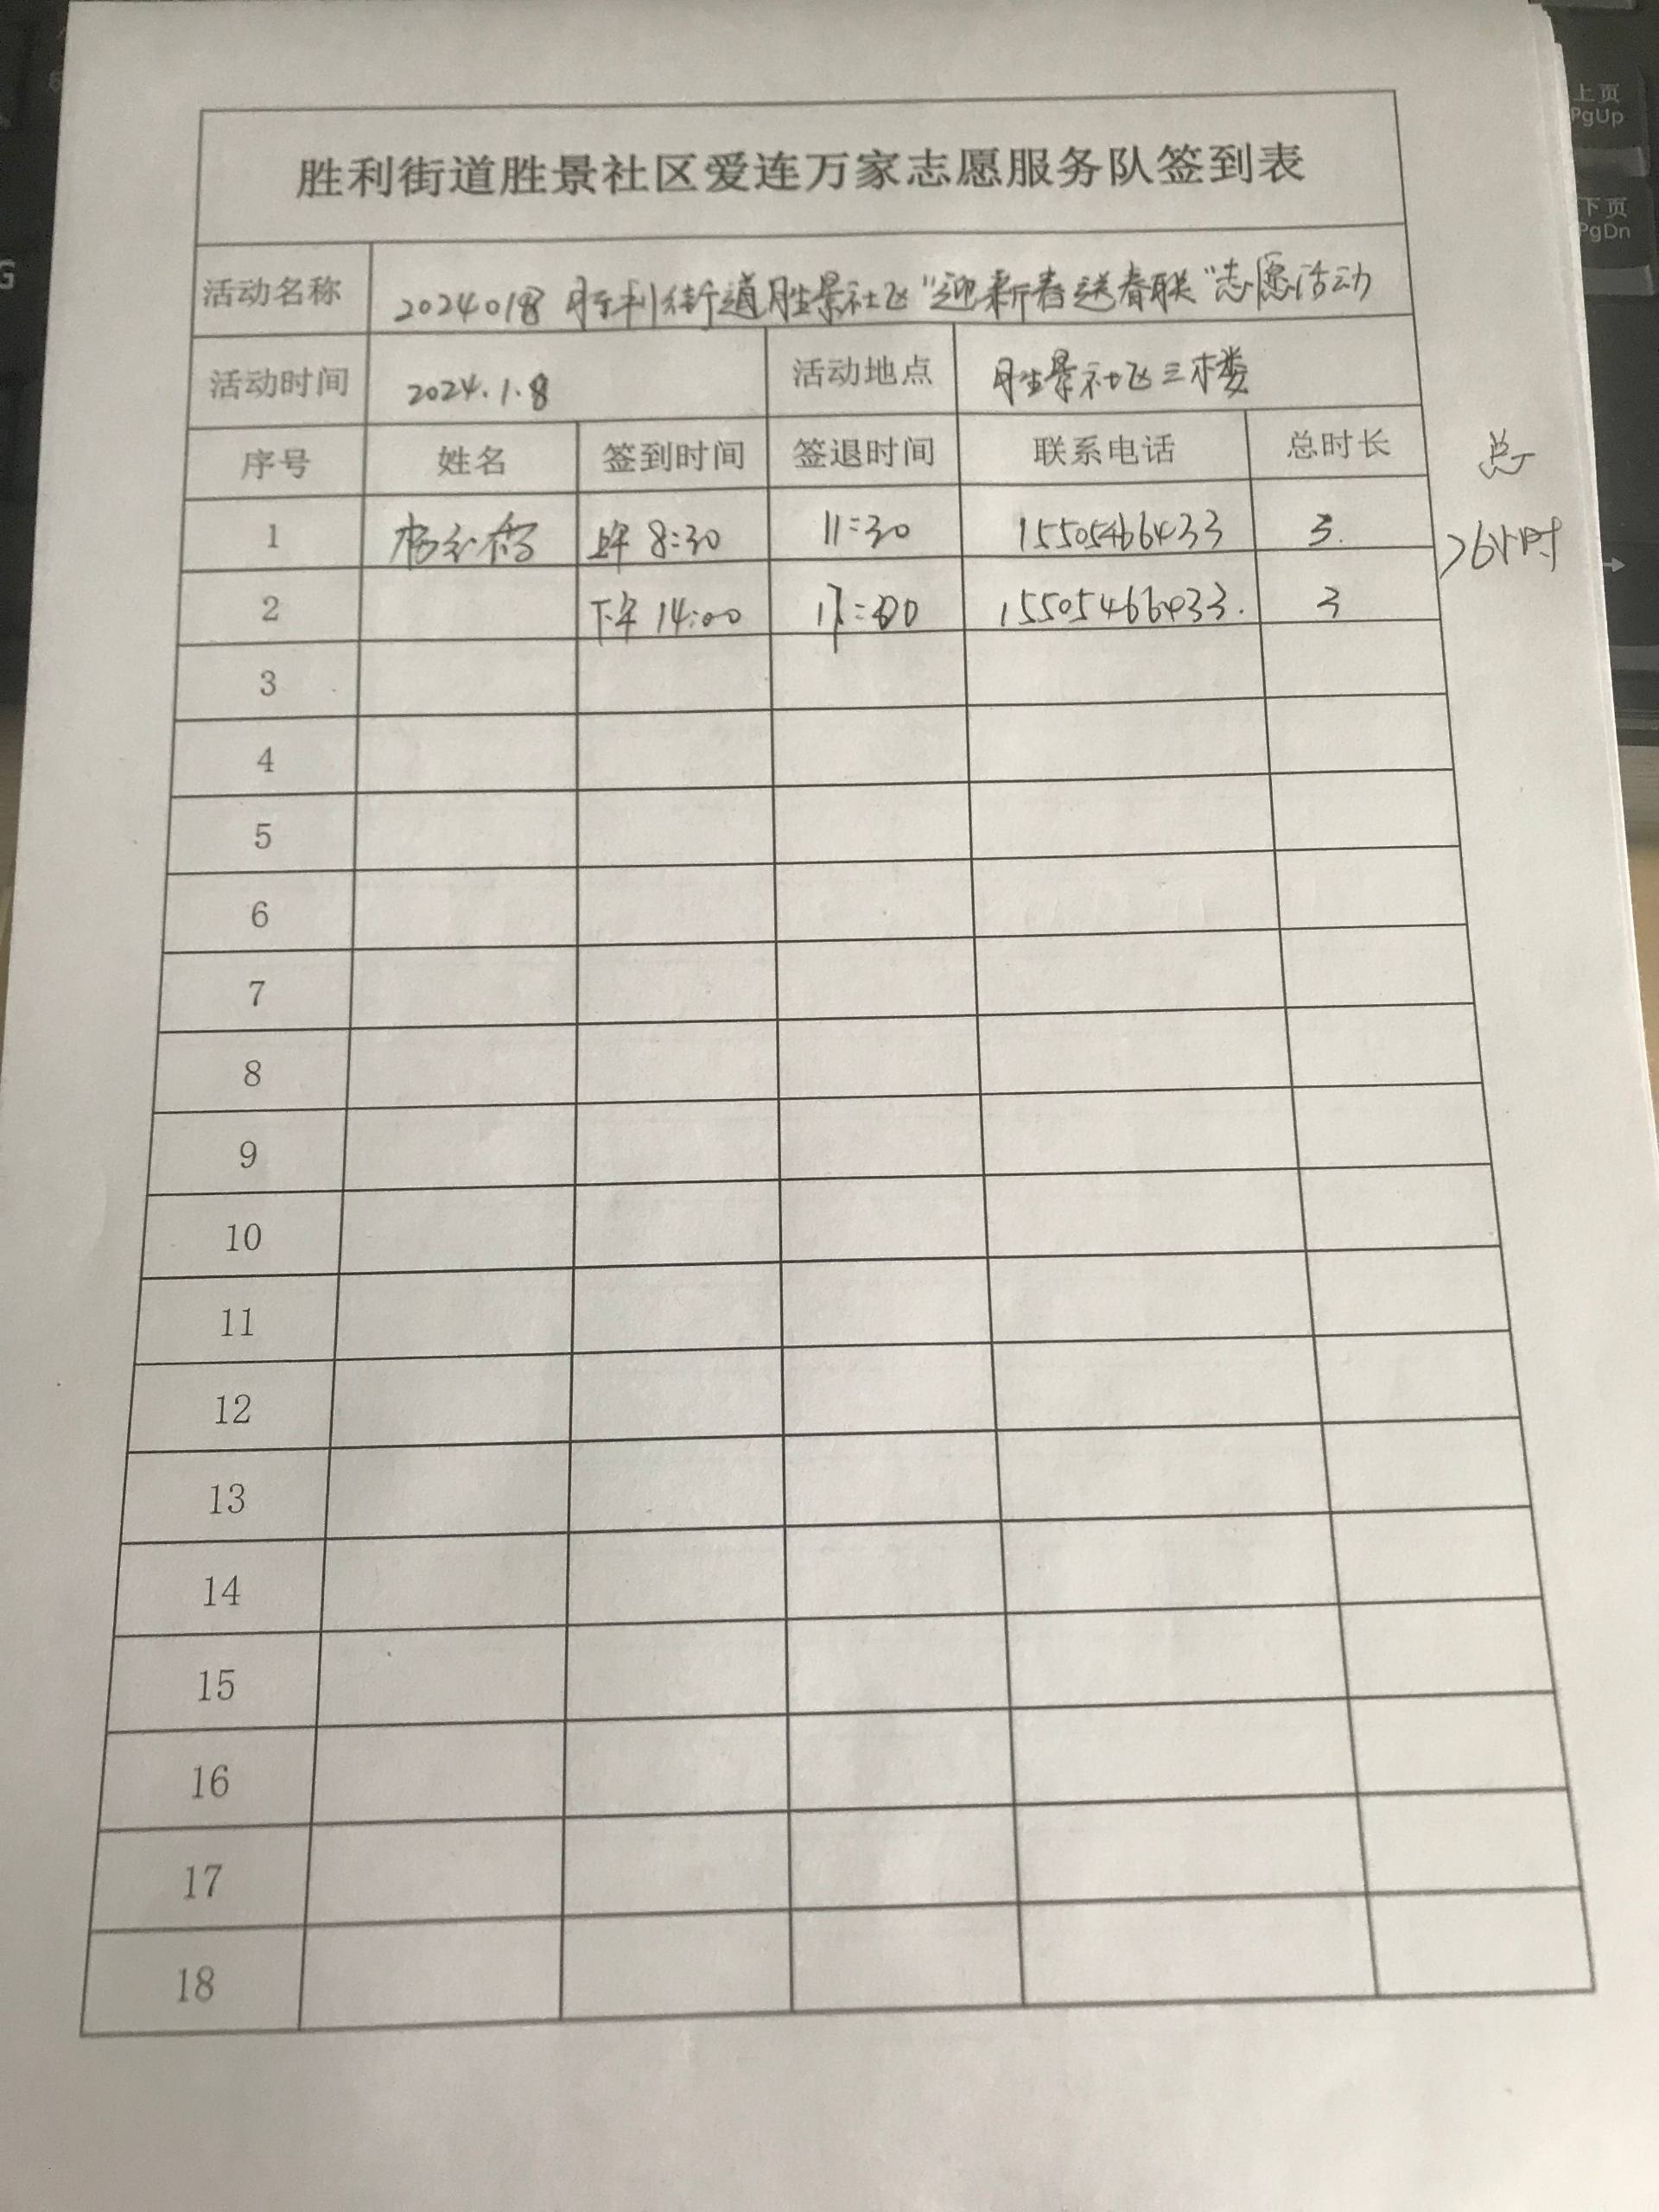 胜利街道胜景社区爱连万家志愿服务队签到表
活动名称 2024018 胜利街道胜景社区"迎新春送春联"志愿活动
活动时间 2024.1.8 活动地点 胜景社区三楼
序号 姓名 签到时间 签退时间 联系电话 总时长 总
1 上午 8:30 11:30 15505466433 3. >6小时
2 下午 14:00 17:00 15505466433. 3
3
4
5
6
7
8
9
10
11
12
13
14
15
16
17
18
上页
PgUp
下页
PgDn
G